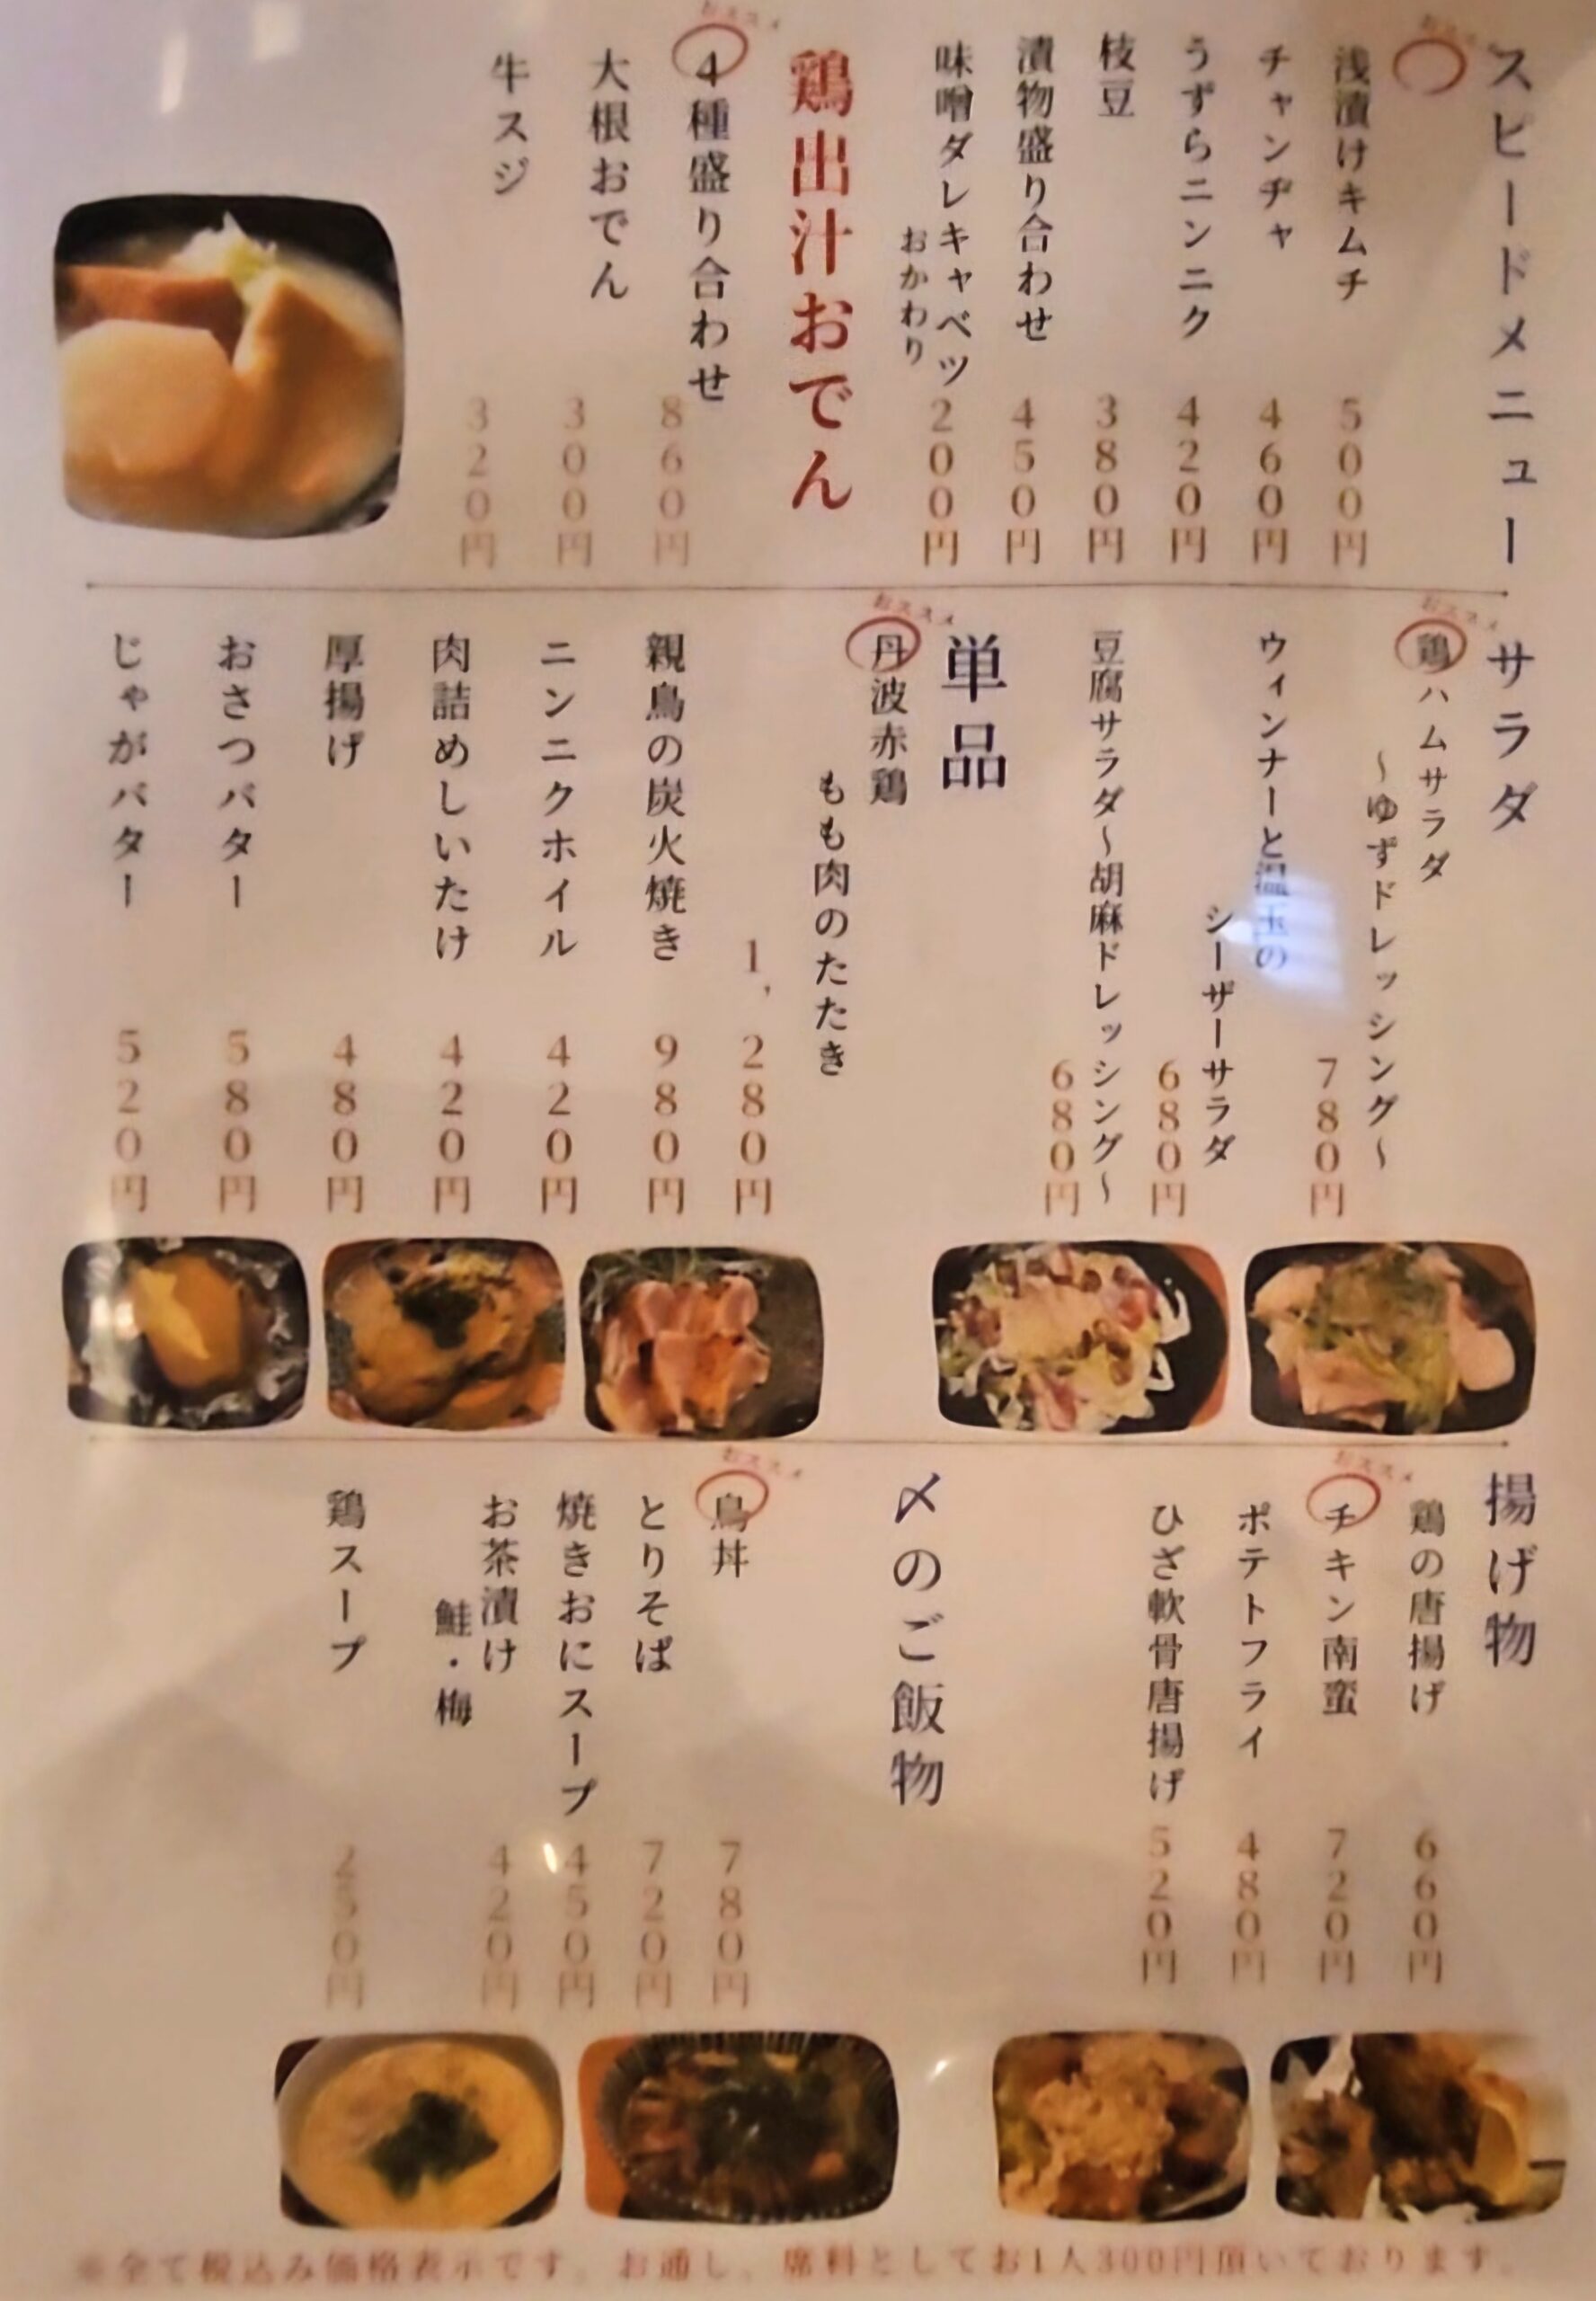 スピードメニュー
おススメ
浅漬けキムチ
500円
チャンヂャ
460円
うずらニンニク
420円
枝豆
380円
漬物盛り合わせ
450円
味噌ダレキャベツ
おかわり
200円
鶏出汁おでん
おススメ
4種盛り合わせ
860円
大根おでん
300円
牛スジ
320円
サラダ
おススメ
鶏ハムサラダ
～ゆずドレッシング～
780円
ウィンナーと温玉の
シーザーサラダ
680円
豆腐サラダ～胡麻ドレッシング～
680円
単品
おススメ
丹波赤鶏
もも肉のたたき
1,280円
親鳥の炭火焼き
980円
ニンニクホイル
420円
肉詰めしいたけ
420円
厚揚げ
480円
おさつバター
580円
じゃがバター
520円
揚げ物
鶏の唐揚げ
660円
おススメ
チキン南蛮
720円
ポテトフライ
480円
ひざ軟骨唐揚げ
520円
〆のご飯物
おススメ
鳥丼
780円
とりそば
720円
焼きおにスープ
450円
お茶漬け
鮭・梅
420円
鶏スープ
250円
※全て税込み価格表示です。お通し、席料としてお1人300円頂いております。